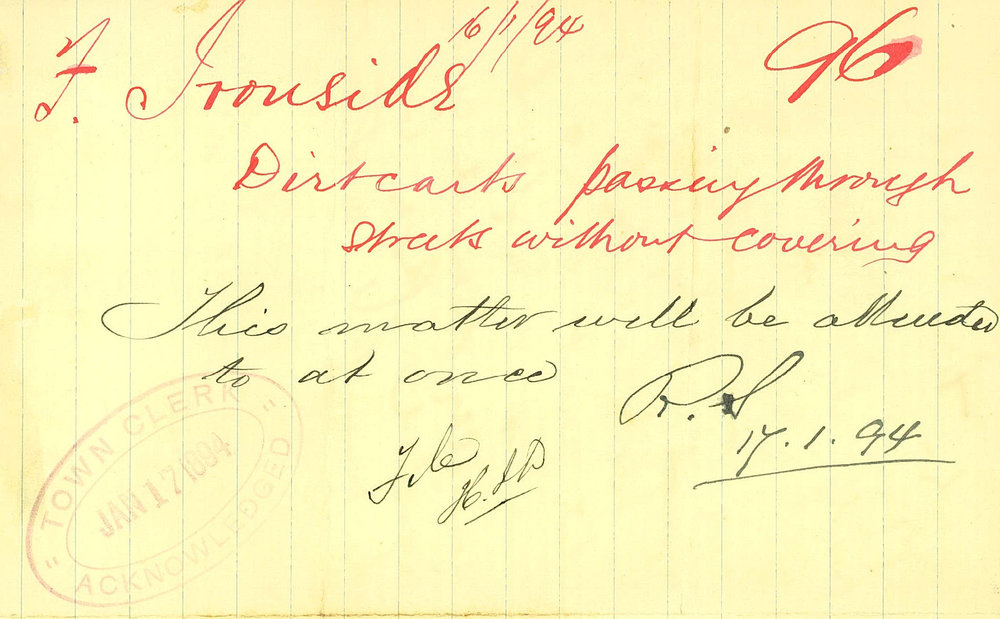 16/1/94
F. Ironside
96
Dirtcarts passing through
streets without covering
This matter will be attended
to at once
R. S
17.1.94
File
TOWN CLERK
JAN 17 1894
ACKNOWLEDGED